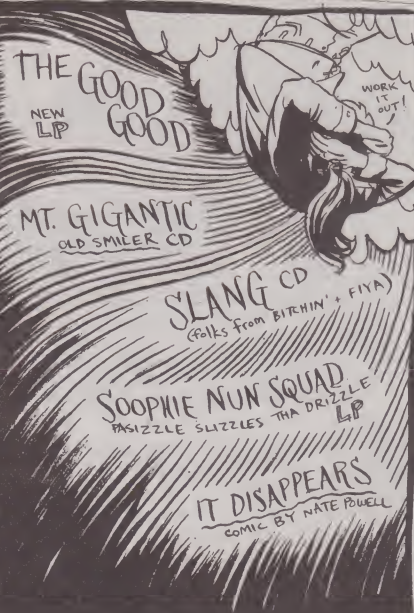 THE GOOD
GOOD
NEW
LP
WORK
IT
OUT!
MT. GIGANTIC
OLD SMILER CD
SLANG CD
(folks from BITCHIN' + FIYA)
SOOPHIE NUN SQUAD
PASIZZLE SLIZZLES THA DRIZZLE
LP
IT DISAPPEARS
COMIC BY NATE POWELL